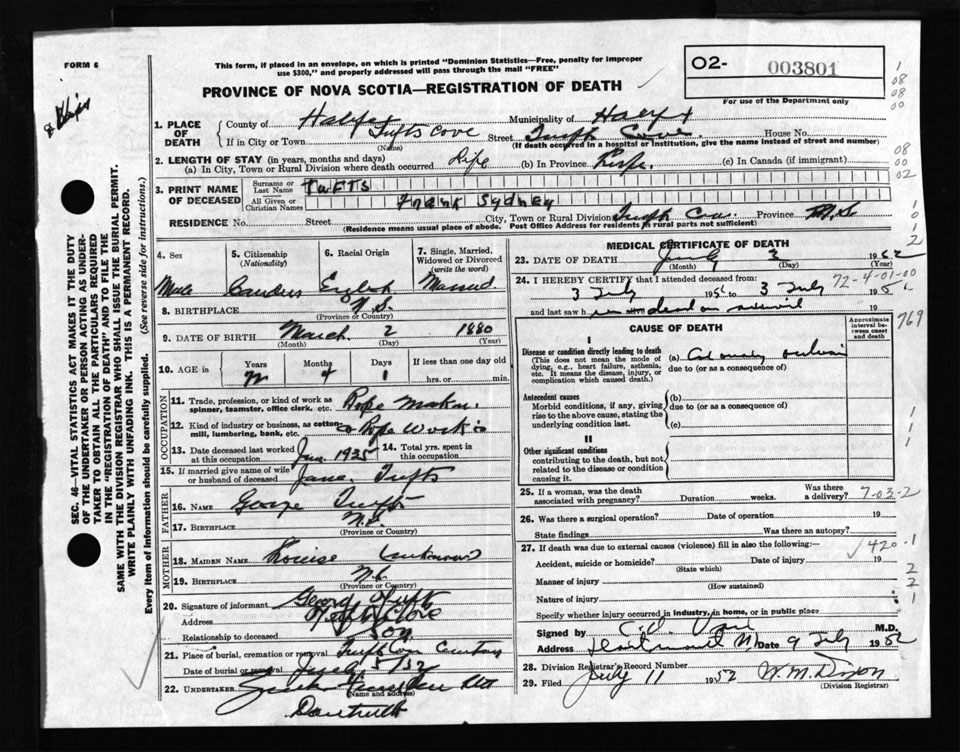 FORM 6
This form, if placed in an envelope, on which is printed "Dominion Statistics—Free, penalty for improper
use $300," and properly addressed will pass through the mail "FREE"
PROVINCE OF NOVA SCOTIA—REGISTRATION OF DEATH
02- 003801
For use of the Department only
1. PLACE OF DEATH
County of Halifax Municipality of Halifax
If in City or Town Tufts Cove Street Tufts Cove House No.
(Name) (If death occurred in a hospital or institution, give the name instead of street and number)
2. LENGTH OF STAY (in years, months and days)
(a) In City, Town or Rural Division where death occurred Life (b) In Province Life (c) In Canada (if immigrant)
3. PRINT NAME OF DECEASED
Surname or Last Name TUFTS
All Given or Christian Names Frank Sydney
RESIDENCE No. Street City, Town or Rural Division Tufts Cove Province N.S.
(Residence means usual place of abode. Post Office Address for residents in rural parts not sufficient)
4. Sex Male
5. Citizenship (Nationality)
6. Racial Origin English
7. Single, Married, Widowed or Divorced (write the word) Married
8. BIRTHPLACE N.S.
(Province or Country)
9. DATE OF BIRTH March 2 1880
(Month) (Day) (Year)
10. AGE in Years 72 Months 4 Days 1 If less than one day old hrs. or min.
OCCUPATION
11. Trade, profession, or kind of work as spinner, teamster, office clerk, etc. Rope Maker
12. Kind of industry or business, as cotton mill, lumbering, bank, etc. Rope Works
13. Date deceased last worked at this occupation 1935
14. Total yrs. spent in this occupation
15. If married give name of wife or husband of deceased Jane Tufts
FATHER
16. NAME George Tufts
17. BIRTHPLACE N.S.
(Province or Country)
MOTHER
18. MAIDEN NAME Louise Unknown
19. BIRTHPLACE N.S.
(Province or Country)
20. Signature of informant George Tufts
Address Tufts Cove
Relationship to deceased Son
21. Place of burial, cremation or removal Tufts Cove Cemetery
Date of burial or removal July 5/52
22. UNDERTAKER
(Name and address)
Dartmouth
MEDICAL CERTIFICATE OF DEATH
23. DATE OF DEATH July 3 1952
(Month) (Day) (Year)
24. I HEREBY CERTIFY that I attended deceased from: 72-4-01-00
3 July 1952 to 3 July 195
and last saw h dead on arrival
769
CAUSE OF DEATH
Approximate interval between onset and death
I
Disease or condition directly leading to death (a) Coronary
(This does not mean the mode of dying, e.g., heart failure, asthenia, etc. It means the disease, injury, or complication which caused death.) due to (or as a consequence of)
Antecedent causes (b)
Morbid conditions, if any, giving rise to the above cause, stating the underlying condition last. due to (or as a consequence of)
(c)
II
Other significant conditions
contributing to the death, but not related to the disease or condition causing it.
25. If a woman, was the death associated with pregnancy? Duration weeks. Was there a delivery? 7-03-2
26. Was there a surgical operation? Date of operation 19
State findings Was there an autopsy?
27. If death was due to external causes (violence) fill in also the following:— 420.1
Accident, suicide or homicide? Date of injury 19
(State which)
Manner of injury
(How sustained)
Nature of injury
Specify whether injury occurred in industry, in home, or in public place
Signed by M.D.
Address Dartmouth N.S. Date 9 July 1952
28. Division Registrar's Record Number
29. Filed July 11 1952 W. M. Dixon
(Division Registrar)
SEC. 46—VITAL STATISTICS ACT MAKES IT THE DUTY
OF THE UNDERTAKER OR PERSON ACTING AS UNDER-
TAKER TO OBTAIN ALL THE PARTICULARS REQUIRED
IN THE "REGISTRATION OF DEATH" AND TO FILE THE
SAME WITH THE DIVISION REGISTRAR WHO SHALL ISSUE THE BURIAL PERMIT.
WRITE PLAINLY WITH UNFADING INK. THIS IS A PERMANENT RECORD.
Every item of information should be carefully supplied. (See reverse side for instructions.)